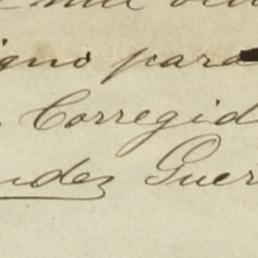 mil
igno para
Corregid
ndez Guer